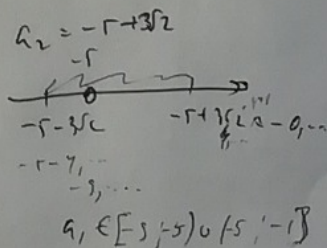 a₂ = -5+3√2
-5
-5-3√2 -5+3√2 ≈ -0,...
-5-4,... 4,...
-9,...
a, ∈ [-9;-5) ∪ (-5;-1]